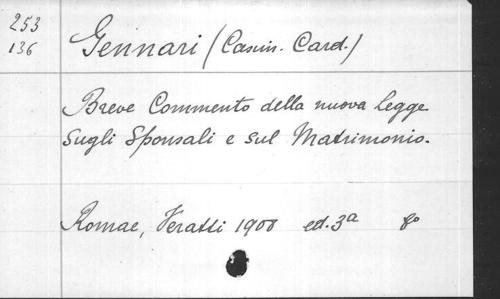 253
136
Gennari (Casim. Card.)
Breve Commento della nuova legge
sugli Sponsali e sul Matrimonio.
Romae, Veratti 1908 ed. 3a 8o